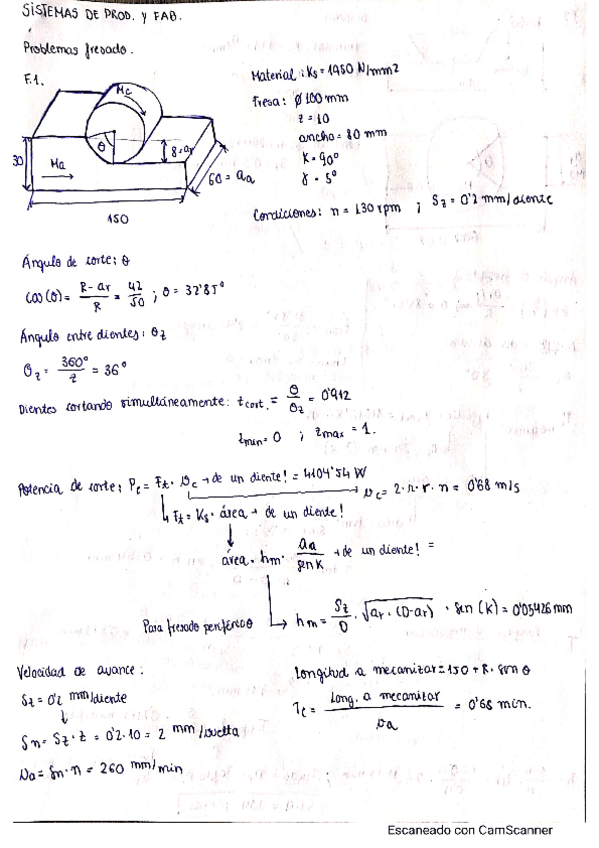 SISTEMAS DE PROD. Y FAB.
Problemas fresado.
F.1.
Mc
θ
8 = ar
30
Ma
60 = aa
150
Material: Ks = 1950 N/mm2
Fresa: ∅ 100 mm
z = 10
ancho = 80 mm
K = 90º
γ = 5º
Condiciones: n = 130 rpm ; Sz = 0'2 mm/diente
Ángulo de corte: θ
cos(θ) = R - ar / R = 42 / 50 ; θ = 32'85º
Ángulo entre dientes: θz
θz = 360º / z = 36º
Dientes cortando simultáneamente: zcort. = θ / θz = 0'912
zmin = 0 ; zmax = 1.
Potencia de corte: Pc = Ft · vc → de un diente! = 4104'54 W
vc = 2·π·r·n = 0'68 m/s
Ft = Ks · área → de un diente!
área = hm · aa / sen K → de un diente! =
Para fresado periférico → hm = Sz / D · √ar · (D-ar) · sen (K) = 0'05426 mm
Velocidad de avance:
Sz = 0'2 mm/diente
Sn = Sz · z = 0'2·10 = 2 mm/vuelta
va = Sn · n = 260 mm/min
Longitud a mecanizar = 150 + R · sen θ
Tc = Long. a mecanizar / va = 0'68 min.
Escaneado con CamScanner